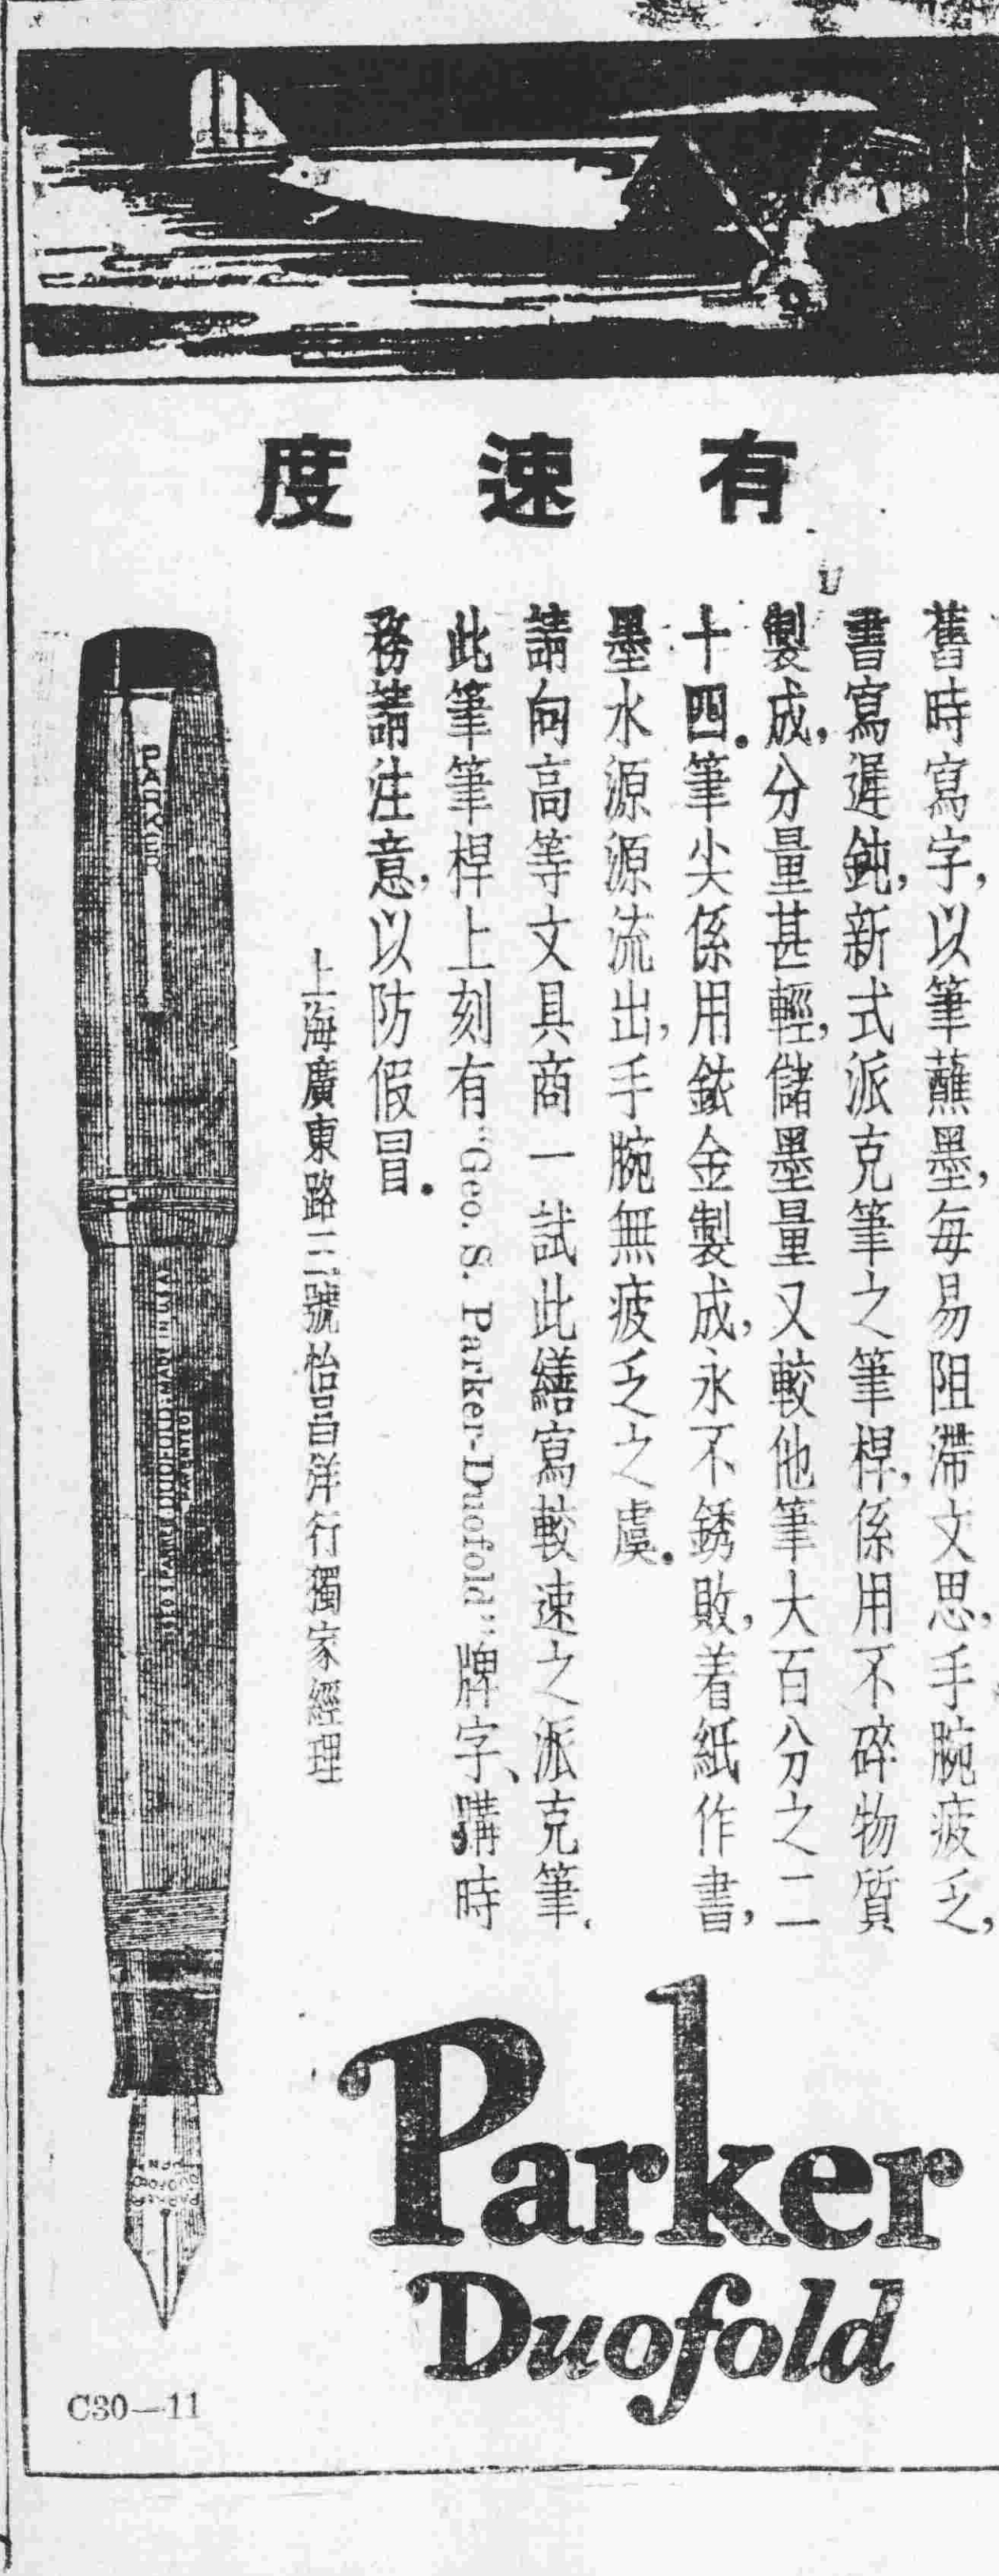 有速度
舊時寫字,以筆蘸墨,每易阻滯文思,手腕疲乏,
書寫遲鈍,新式派克筆之筆桿,係用不碎物質
製成,分量甚輕,儲墨量又較他筆大百分之二
十四.筆尖係用銥金製成,永不銹敗,着紙作書,
墨水源源流出,手腕無疲乏之虞.
請向高等文具商一試此繕寫較速之派克筆.
此筆筆桿上刻有"Geo. S. Parker-Duofold"牌字、購時
務請注意,以防假冒.
上海廣東路三號怡昌洋行獨家經理
PARKER
Parker
Duofold
C30—11